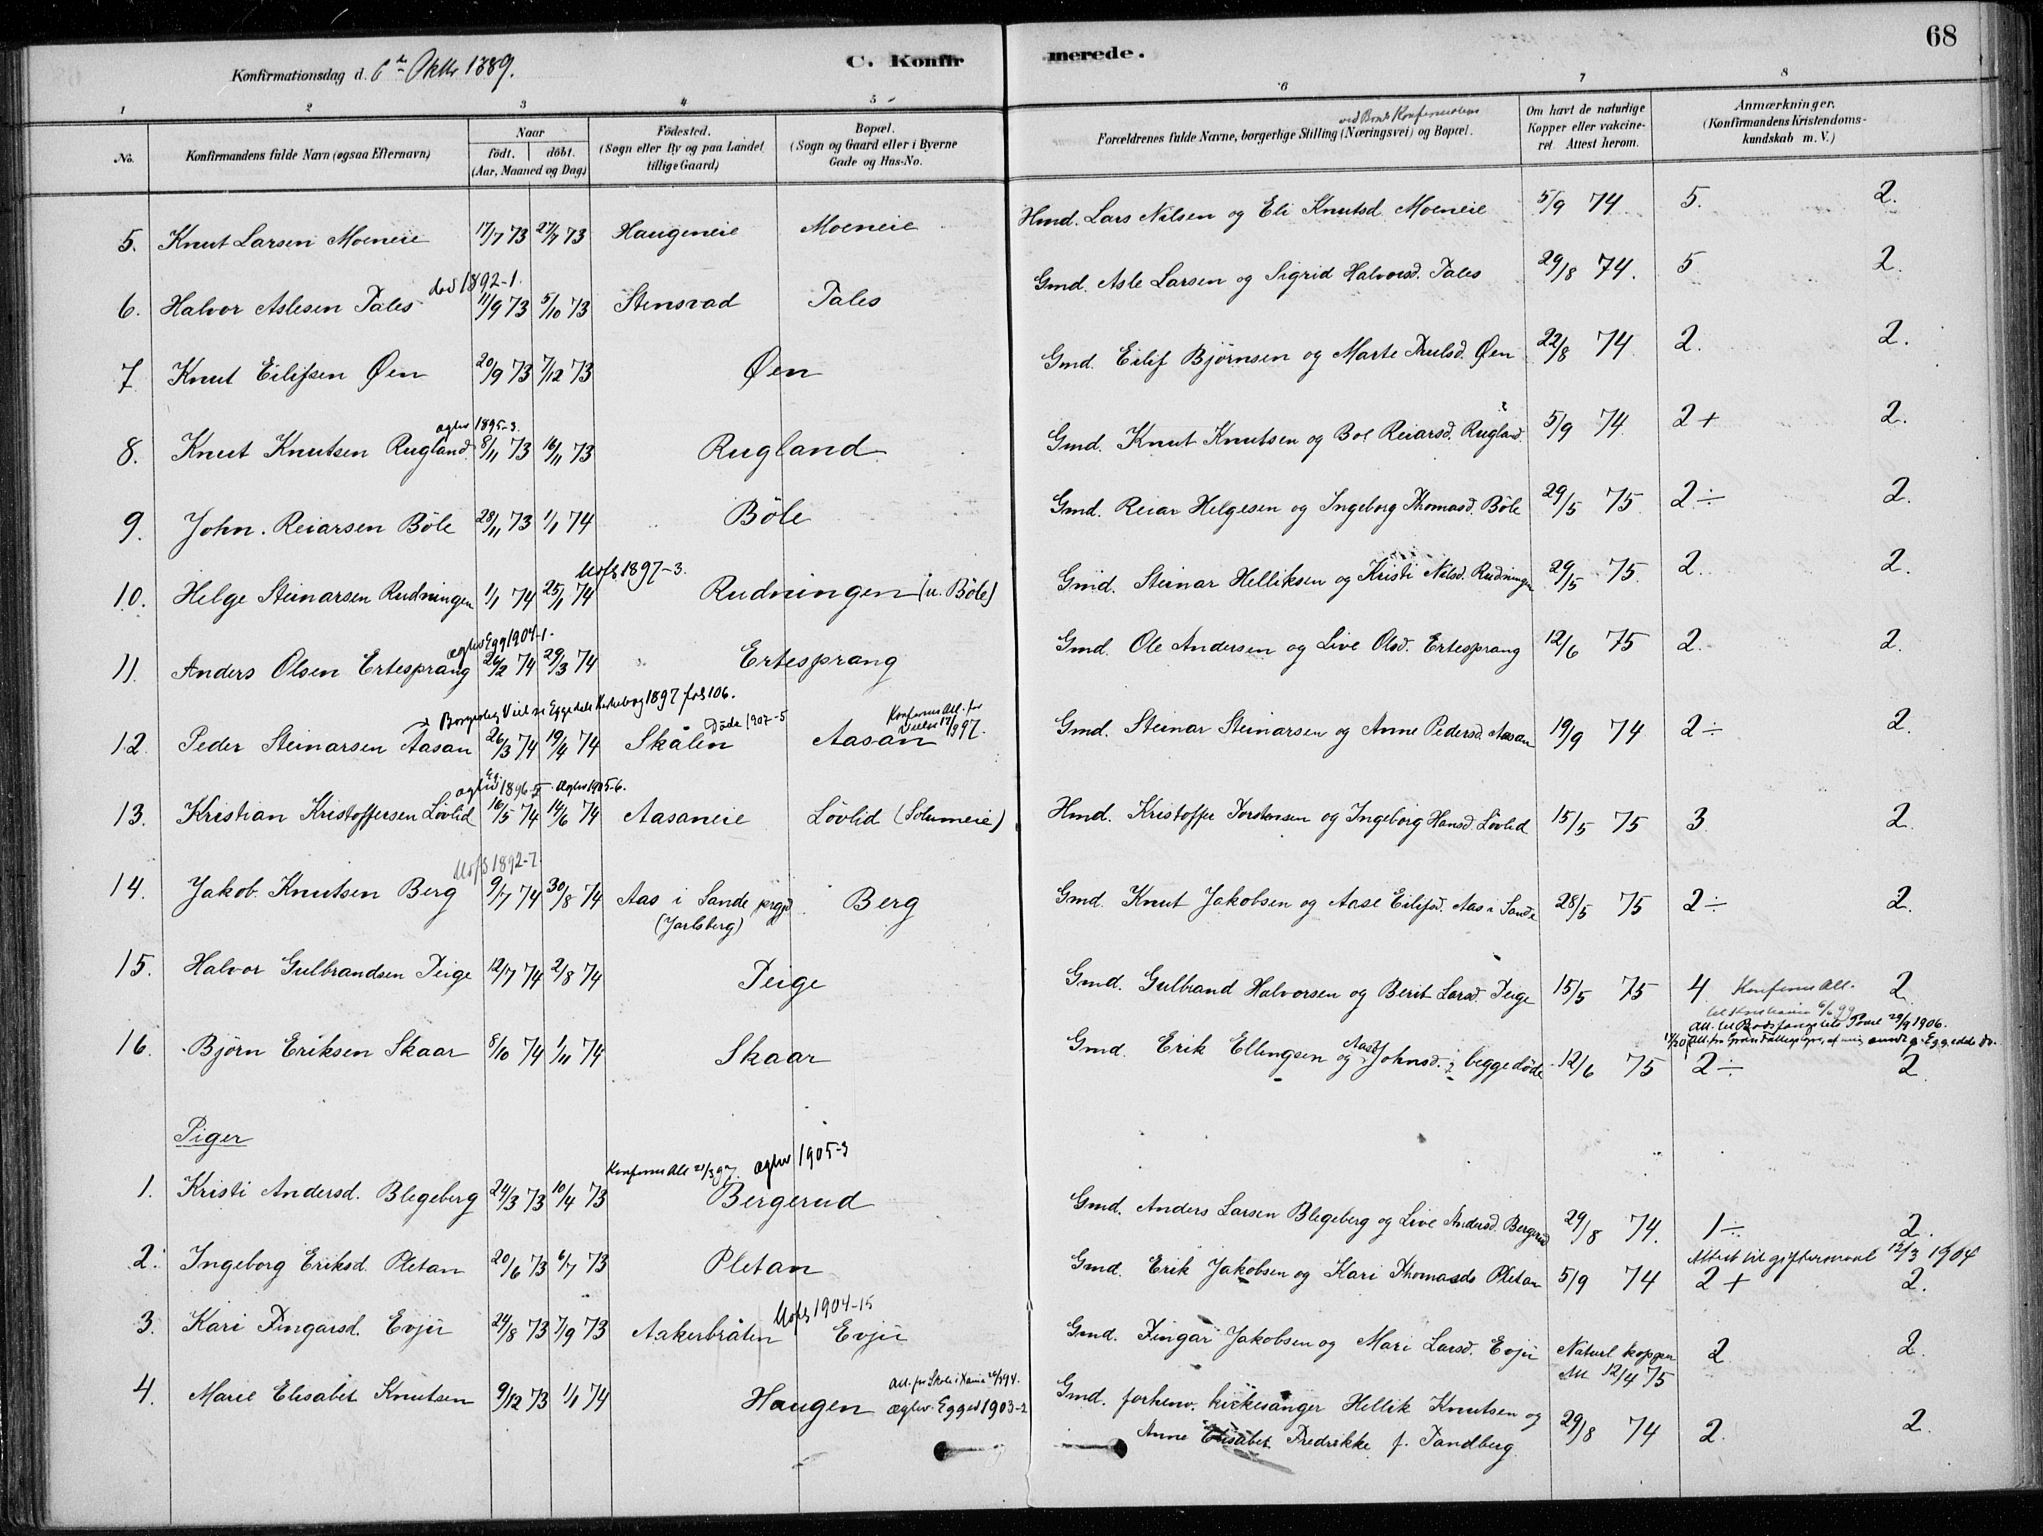 68
Konfirmationsdag d. 6te Oktbr 1889.
C. Konfirmerede.
1 2 3 4 5 6 7 8
No.
Konfirmandens fulde Navn (ogsaa Efternavn)
Naar
födt. döbt.
(Aar, Maaned og Dag)
Födested.
(Sogn eller By og paa Landet
tillige Gaard)
Bopæl.
(Sogn og Gaard eller i Byerne
Gade og Hus-No.
ved Bmds Konfirmation
Forældrenes fulde Navne, borgerlige Stilling (Næringsvei) og Bopæl.
Om havt de naturlige
Kopper eller vakcine-
ret. Attest herom.
Anmærkninger.
(Konfirmandens Kristendoms-
kundskab m. V.)
5. Knut Larsen Moeneie 17/7 73 27/7 73 Haugeneie Moeneie Hmd. Lars Nilsen og Eli Knutsd. Moeneie 5/9 74 5. 2.
død 1892-1.
6. Halvor Aslesen Tales 11/9 73 5/10 73 Stensvad Tales Gmd. Asle Larsen og Sigrid Halvorsd. Tales 29/8 74. 5 2.
7 Knut Eilifsen Øen 20/9 73 7/12 73 Øen Gmd. Eilif Bjørnsen og Marte Trulsd. Øen 22/8 74. 2. 2.
agtev 1895-3.
8. Knut Knutsen Rugland 8/11 73 16/11 73 Rugland Gmd. Knut Knutsen og Bol Reiarsd. Rugland 5/9 74. 2+ 2.
9. John Reiarsen Böle 28/11 73 1/1 74 Böle Gmd. Reiar Helgesen og Ingeborg Thomasd. Böle 29/5 75. 2÷ 2.
Uofs 1897-3.
10. Helge Steinarsen Rudningen 1/1 74 25/1 74 Rudningen (u. Böle) Gmd. Steinar Helliksen og Kristi Nilsd. Rudningen 29/5 75. 2. 2.
ægtev Egg 1904-1.
11. Anders Olsen Ertesprang 26/2 74 29/3 74 Ertesprang Gmd. Ole Andersen og Live Olsd. Ertesprang 12/6 75 2. 2.
Borgerlig Viel se Eggedals Kirkebog 1897 fol 106.
Döde 1907-5
Konfirms Att. for
Vielse 17/ 1897.
12. Peder Steinarsen Aasan 26/3 74 19/4 74 Skålen Aasan Gmd. Steinar Steinarsen og Anne Pedersd. Aasan 19/9 74 2÷ 2.
Eg.
agtev 1896-5. Agtev 1905-6.
13. Kristian Kristoffersen Lövlid 16/5 74 14/6 74 Aasaneie Lövlid (Solumeie) Hmd. Kristoffer Torstensen og Ingeborg Hansd. Lövlid 15/5 75 3 2.
Uofs 1892-7.
14. Jakob Knutsen Berg 9/7 74 30/8 74 Aas i Sande prgjd Berg Gmd. Knut Jakobsen og Aase Eilifsd. Aas i Sande 28/5 75 2÷ 2.
(Jarlsberg)
15. Halvor Gulbrandsen Teige 12/7 74 2/8 74 Teige Gmd. Gulbrand Halvorsen og Berit Larsd. Teige 15/5 75 4 Konfirms Att. 2
til Kristiania 6/6 99
Att. til Bodsfængslets 29/9 1906.
16. Björn Eriksen Skaar 8/10 74 1/11 74 Skaar Gmd. Erik Ellingsen og Aase Johnsd. beggedöde 12/6 75 2÷ 2
Piger
Konfirms Att 21/3 97. ægtev 1905-3
1. Kristi Andersd. Blegeberg 24/3 73 10/4 73 Bergerud Gmd. Anders Larsen Blegeberg og Live Andersd. Bergerud 29/8 74. 1÷ 2.
Attest til giftermaal 12/3 1904
2. Ingeborg Eriksd. Pletan 20/6 73 6/7 73 Pletan Gmd. Erik Jakobsen og Kari Thomasd Pletan 5/9 74 2+ 2.
Uofs 1904-15
3. Kari Fingarsd. Evju 24/8 73 7/9 73 Aakerbråten Evju Gmd. Fingar Jakobsen og Mari Larsd. Evju Naturl kopper 2 2.
Att 12/4 75
Att. fra Skole i Xania 20/8 94.
4. Marie Elisabet Knutsen 9/12 73 1/1 74 Haugen ægtev. Egged 1903-2 Gmd. forhenv. kirkesanger Hellik Knutsen og 29/8 74 2. 2.
Anne Elisabet Fredrikke f. Tandberg